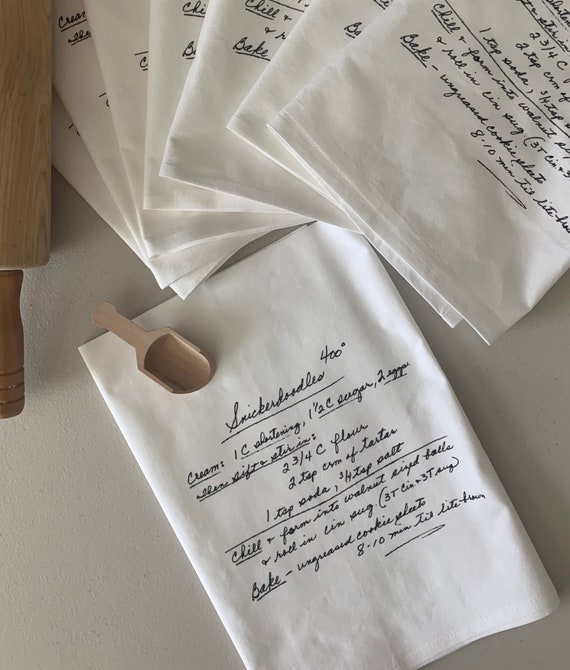 Cream
then
Chill &
Bake
Chill & form into
Bake
Chill & form into walnut
1 tsp soda, 3/4 tsp
2 3/4 C
2 tsp crm of
& roll in cin sug (3T cin &
Bake - ungreased cookie sheets
8-10 min til lite brown
Snickerdoodles 400°
Cream: 1 C shortening, 1 1/2 C sugar, 2 eggs
then sift & stir in:
2 3/4 C flour
2 tsp crm of tartar
1 tsp soda, 3/4 tsp salt
Chill & form into walnut sized balls
& roll in cin sug (3T cin & 3T sug)
Bake - ungreased cookie sheets
8-10 min til lite brown